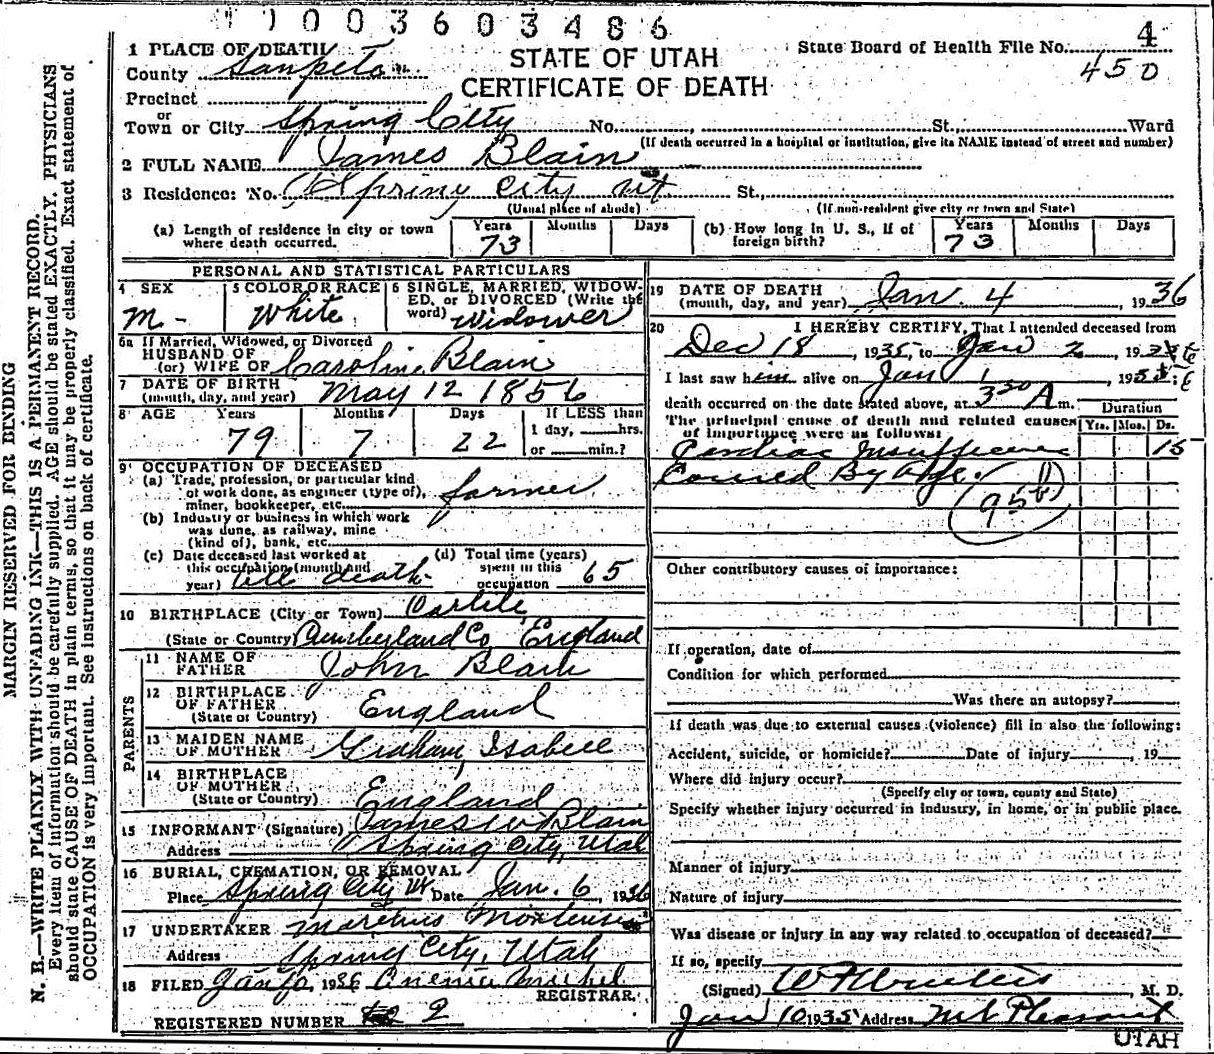 1003603486
1 PLACE OF DEATH
County Sanpete
STATE OF UTAH
CERTIFICATE OF DEATH
State Board of Health File No. 4
450
Precinct
or
Town or City Spring City No. , St., Ward
(If death occurred in a hospital or institution, give its NAME instead of street and number)
2 FULL NAME James Blain
3 Residence: No. Spring City Ut St.,
(Usual place of abode) (If non-resident give city or town and State)
(a) Length of residence in city or town where death occurred. Years 73 Months Days
(b) How long in U. S., if of foreign birth? Years 73 Months Days
PERSONAL AND STATISTICAL PARTICULARS
4 SEX M-
5 COLOR OR RACE White
6 SINGLE, MARRIED, WIDOWED, or DIVORCED (Write the word) Widower
6a If Married, Widowed, or Divorced
HUSBAND OF
(or) WIFE OF Caroline Blain
7 DATE OF BIRTH
(month, day, and year) May 12 1856
8 AGE Years 79 Months 7 Days 22 If LESS than 1 day, hrs. or min.?
9 OCCUPATION OF DECEASED
(a) Trade, profession, or particular kind of work done, as engineer (type of), miner, bookkeeper, etc. farmer
(b) Industry or business in which work was done, as railway, mine (kind of), bank, etc.
(c) Date deceased last worked at this occupation (month and year) till death
(d) Total time (years) spent in this occupation 65
10 BIRTHPLACE (City or Town) Carlile,
(State or Country) Cumberland Co England
PARENTS
11 NAME OF FATHER John Blain
12 BIRTHPLACE OF FATHER
(State or Country) England
13 MAIDEN NAME OF MOTHER Graham, Isabell
14 BIRTHPLACE OF MOTHER
(State or Country) England
15 INFORMANT (Signature) James W Blain
Address Spring City, Utah
16 BURIAL, CREMATION, OR REMOVAL
Place Spring City Ut Date Jan. 6, 1936
17 UNDERTAKER Maretius Mortensen
Address Spring City, Utah
18 FILED Jan 1936
REGISTRAR.
REGISTERED NUMBER 2
19 DATE OF DEATH
(month, day, and year) Jan. 4 1936
20 I HEREBY CERTIFY, That I attended deceased from
Dec 18, 1935, to Jan 2, 1936
I last saw him alive on Jan 1, 193
death occurred on the date stated above, at 3 30 A m.
The principal cause of death and related causes of importance were as follows:
Duration
Yrs. Mos. Ds.
Cardiac Insufficiency 15
Caused By Age.
95 b
Other contributory causes of importance:
If operation, date of
Condition for which performed
Was there an autopsy?
If death was due to external causes (violence) fill in also the following:
Accident, suicide, or homicide? Date of injury , 19
Where did injury occur?
(Specify city or town, county and State)
Specify whether injury occurred in industry, in home, or in public place.
Manner of injury
Nature of injury
Was disease or injury in any way related to occupation of deceased?
If so, specify
(Signed) , M. D.
Jan 10 1935 Address Mt Pleasant
UTAH
MARGIN RESERVED FOR BINDING
N. B.—WRITE PLAINLY WITH UNFADING INK—THIS IS A PERMANENT RECORD.
Every item of information should be carefully supplied. AGE should be stated EXACTLY. PHYSICIANS
should state CAUSE OF DEATH in plain terms, so that it may be properly classified. Exact statement of
OCCUPATION is very important. See instructions on back of certificate.